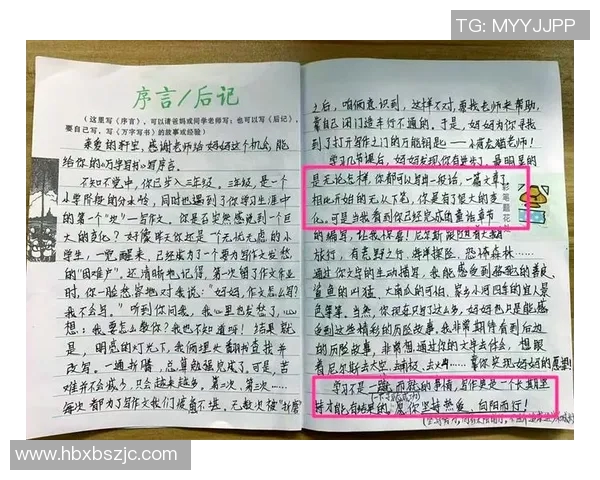 TG: MYYJJPP
序言/后记
(这里写《序言》,可以请爸妈或同学老师写;也可以写《后记》,
要自己写,写《万字写书》的故事或经验)
亲爱的轩宝,感谢老师给妈妈这个机会,能
给你的《万字写书》写序言。
不知不觉中,你已步入三年级。三年级,是一个
小学阶段的分水岭,同时也遇到了你学习生涯中
的第一个"坎"—写作文。你是否突然感觉到一个巨
大的变化?好像昨天你还是一个无忧无虑的小
学生,一觉醒来,已经成为了一个要为写作文发愁
的"困难户"。还清晰地记得,第一次留了作文作业
时,你一脸愁容地对我说:"妈妈,作文怎么写?
我不会写。"听到你问我,我心里也发愁了,
想,我要怎么教你?我也不知道呀!结果就
是,明亮的灯光下,我俩埋头翻书查找并
改写。一通折腾,总算勉强完成了。可是,苦
难并不会减少,只会越来越多。第二次、第三次……
每次都为了写作文我们疲惫不堪。无数次被"折磨"
之后,咱俩意识到,这样不对,要找老师来帮助,
靠自己闭门造车行不通的。于是,妈妈为你寻找
到了打开写作之门的万能钥匙——
学习几节课后,妈妈发现你有进步了。最明显的
是无论怎样,你都可以写出一段话,一篇文章了。
相比开始的无从下笔,你是有了很大的变
化。可是当我看到你已经完成的童话章节
的编写,让我惊喜!尼尔斯跟随着大雁
旅行,有荒野之行、海洋探险、恐怖森林……
通过你文字的生动描写,我能感受到
鲨鱼的凶猛、大南瓜的可怕、家乡小河四季的宜人景
色等等。当然,你现在只写了这么多,妈妈也只是能感
受到这些精彩的历险故事,我非常期待看到后边
的历险故事,非常想通过你的文笔去体会,想跟
着尼尔斯去太空、去海底、去……靠你实现妈妈的愿望!
学习不是一蹴而就的事情,写作更是一个长期坚
持才能有结果的。愿你坚持热爱,向阳而行!
www.hbxbszjc.com